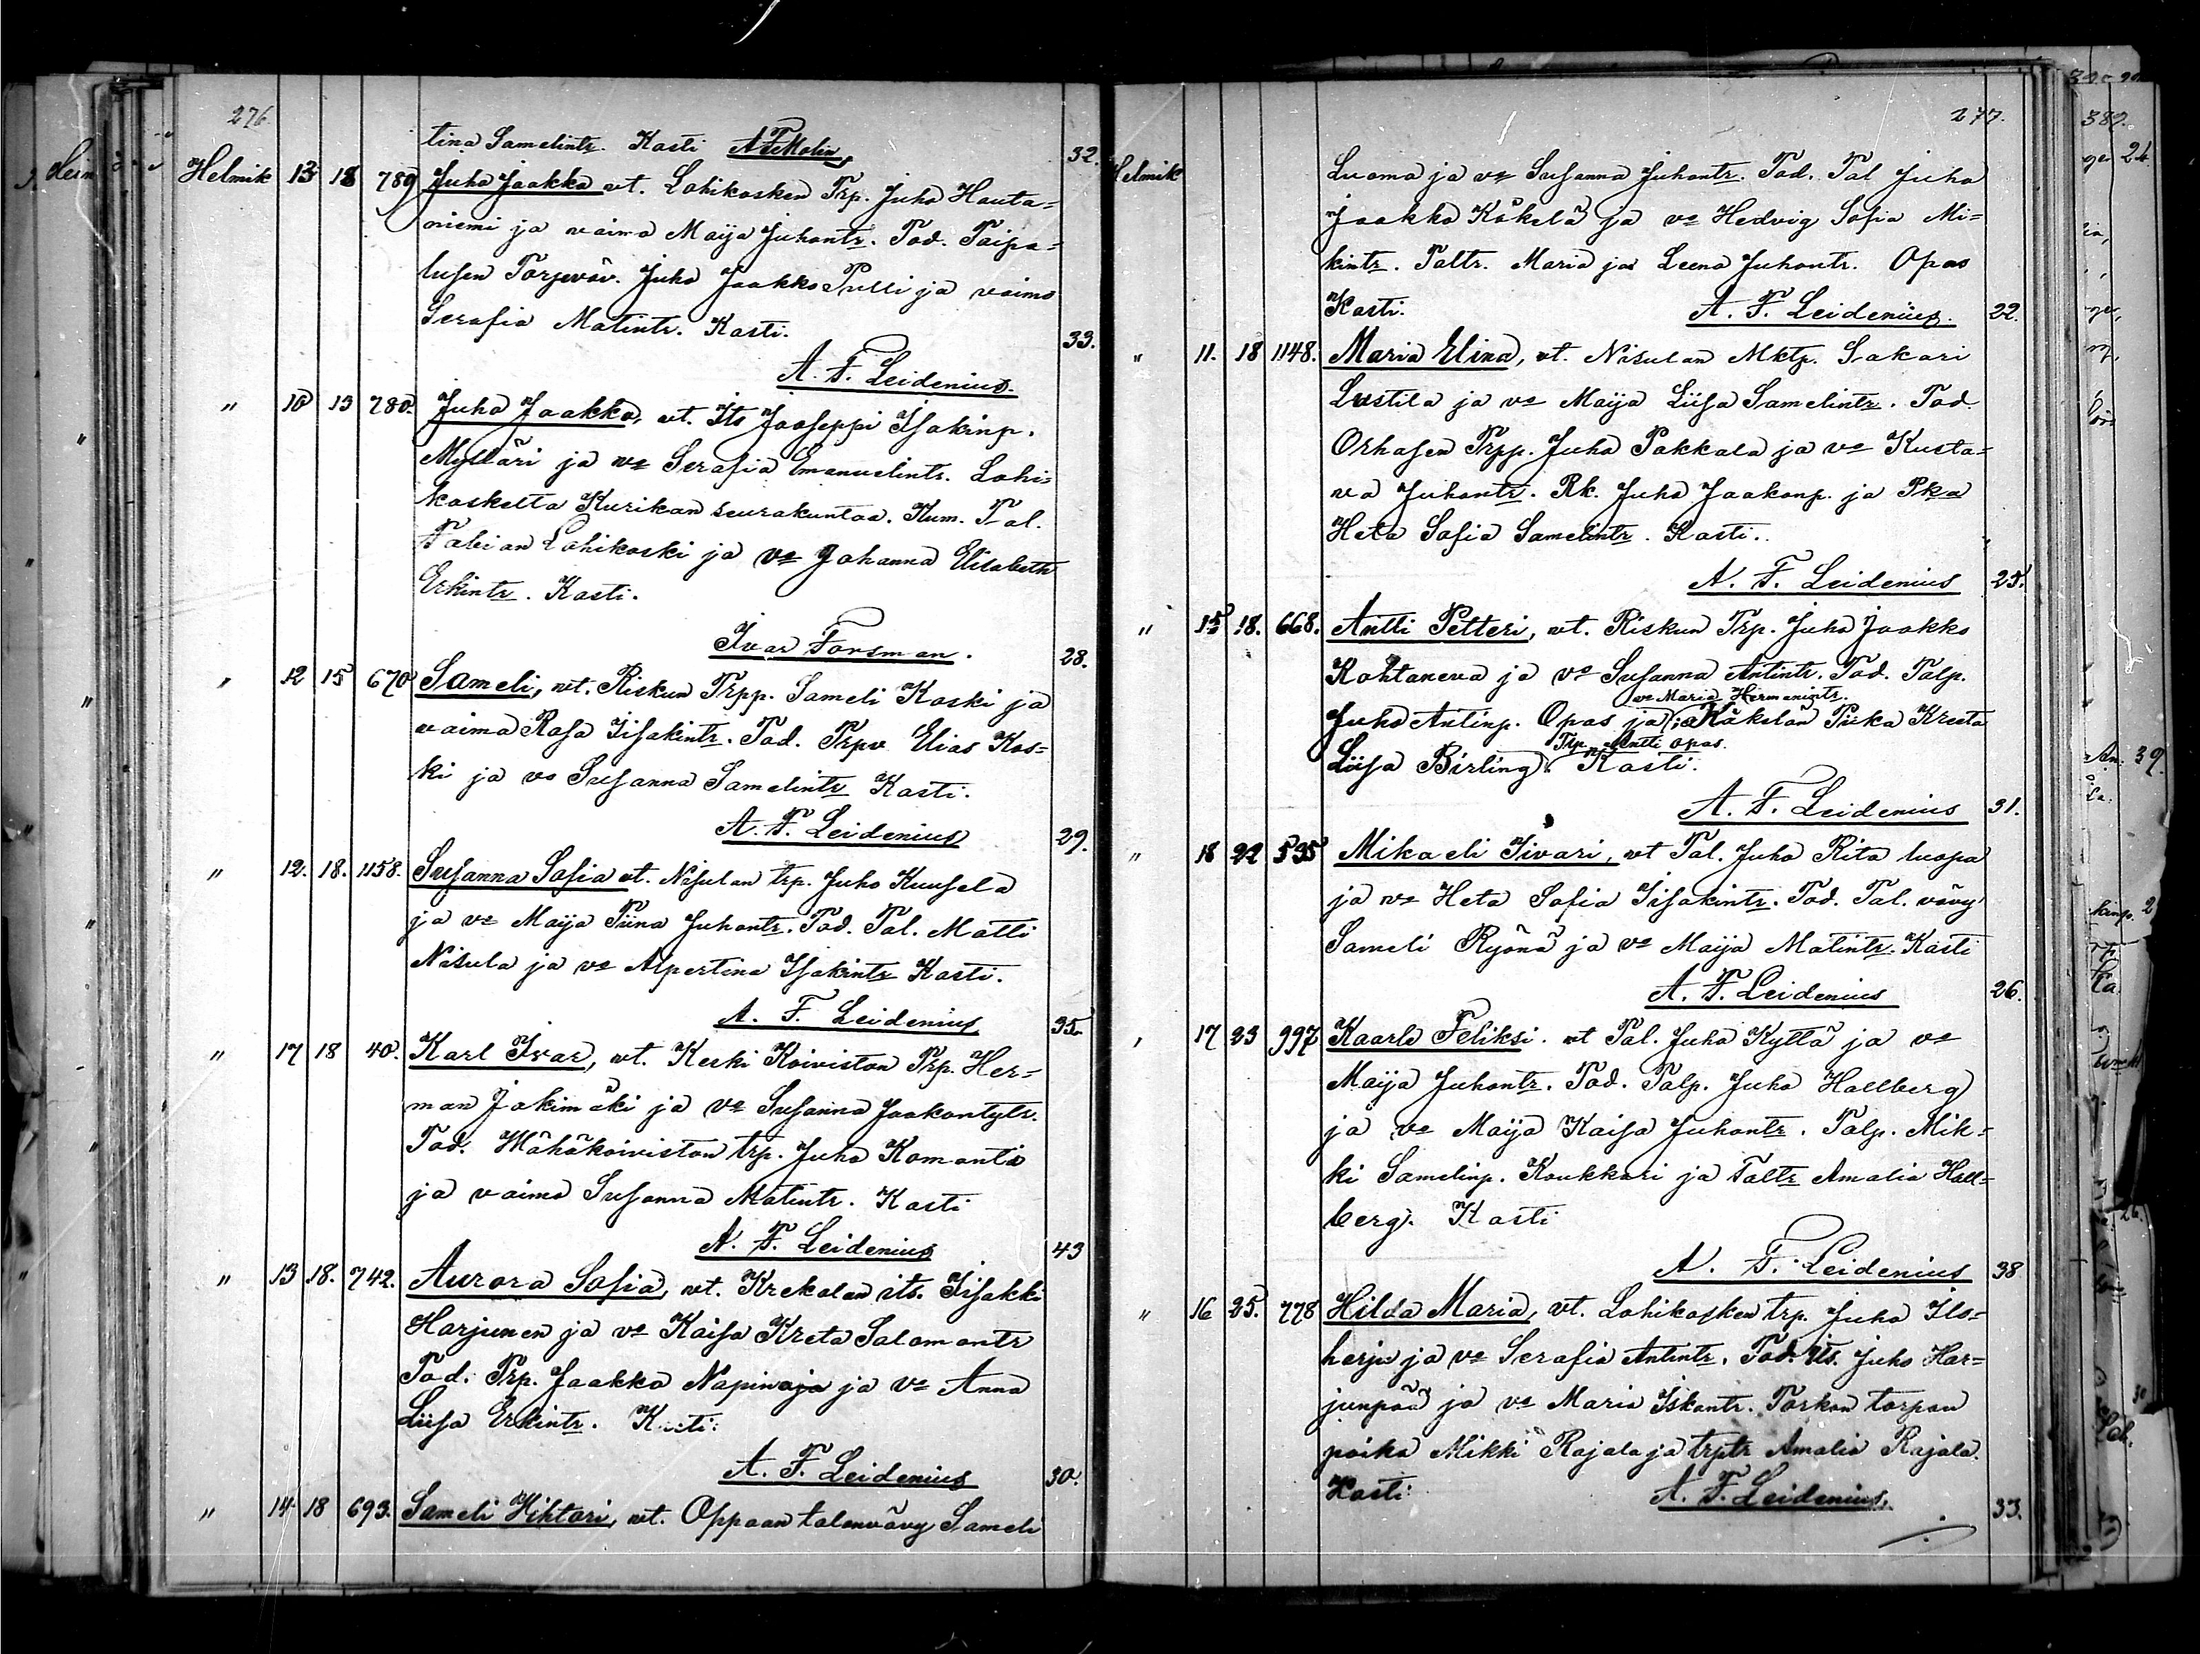 276.
tina Samelintr. Kasti A F Molin 32.
Helmik 13 18 789 Juho Jaakko vt. Lohikosken Trp. Juho Hauta=
niemi ja vaimo Maija Juhontr. Tod. Taipa=
lusen Torpväv. Juho Jaakko Pulli ja vaimo
Serafia Matintr. Kasti. 33.
A. F. Leidenius.
" 10 13 780. Juho Jaakko, vt. Its Jooseppi Isakinp.
Mylläri ja vo Serafia Emanuelintr. Lohi=
koskelta Kurikan seurakuntaa. Kum. Tal.
Fabian Lohikoski ja vo Johanna Elisabeth
Erkintr. Kasti.
Ivar Forsman. 28.
" 12 15 670 Sameli, vt. Riskun Trpp. Sameli Koski ja
vaimo Rosa Iisakintr. Tod. Trpv Elias Kos=
ki ja vo Susanna Samelintr Kasti.
A. F. Leidenius 29.
" 12. 18. 1158. Susanna Sofia vt. Nisulan trp. Juho Kuusela
ja vo Maija Tiina Juhontr. Tod. Tal. Matti
Nisula ja vo Alpertina Isakintr Kasti.
A. F. Leidenius 35
" 17 18 40. Karl Ivar, vt. Keski Koiviston Trp. Her=
man Jokimäki ja vo Susanna Jaakontytr.
Tod. Wähäkoiviston trp. Juho Komonti
ja vaimo Susanna Matintr. Kasti
A. F. Leidenius 43
" 13 18. 742. Aurora Sofia, vt. Krekolan its. Iisakki
Harjunen ja vo Kaisa Kreta Salomontr
Tod. Trp. Jaakko Napinoja ja vo Anna
Liisa Erkintr. Kasti.
A. F. Leidenius 30.
" 14 18 693. Sameli Wihtori, vt. Oppaan talonvävy Sameli
277.
Helmik Luoma ja vo Susanna Juhontr. Tod. Tal Juho
Jaakko Käkelä ja vo Hedvig Sofia Mi=
kintr. Taltr. Maria ja Leena Juhontr. Opas
Kasti. A. F. Leidenius. 22.
" 11. 18 1148. Maria Elina, vt. Nisulan Mktp. Sakari
Lustila ja vo Maija Liisa Samelintr. Tod.
Orhasen Trpp. Juho Pakkala ja vo Kusta=
va Juhontr. Rk. Juho Jaakonp. ja Pka
Heta Sofia Samelintr. Kasti.
A. F. Leidenius 25.
" 15 18. 668. Antti Petteri, vt. Riskun Trp. Juho Jaakko
Kohtaneva ja vo Susanna Antintr. Tod. Talp.
vo Maria Hermanintr.
Juho Antinp. Opas ja Käkelän Piika Kreeta
Trp. Antti Opas.
Liisa Birling. Kasti.
A. F. Leidenius 31.
" 18 22 535 Mikaeli Iivari, vt Tal. Juho Rita luopa
ja vo Heta Sofia Iisakintr. Tod. Tal. vävy
Sameli Ryönä ja vo Maija Matintr. Kasti
A. F. Leidenius 26.
" 17 23 997 Kaarlo Feliksi. vt Tal. Juho Kyttä ja vo
Maija Juhontr. Tod. Talp. Juho Hallberg
ja vo Maija Kaisa Juhontr. Talp. Mik=
ki Samelinp. Koukkari ja Taltr Amalia Hall=
berg. Kasti
A. F. Leidenius 38
" 16 25. 778 Hilda Maria, vt. Lohikosken trp. Juho Ilo=
harju ja vo Serafia Antintr. Tod. Its. Juho Har=
junpää ja vo Maria Iskontr. Torkon torpan
poika Mikki Rajala ja trptr Amalia Rajala.
Kasti A. F. Leidenius. 33.